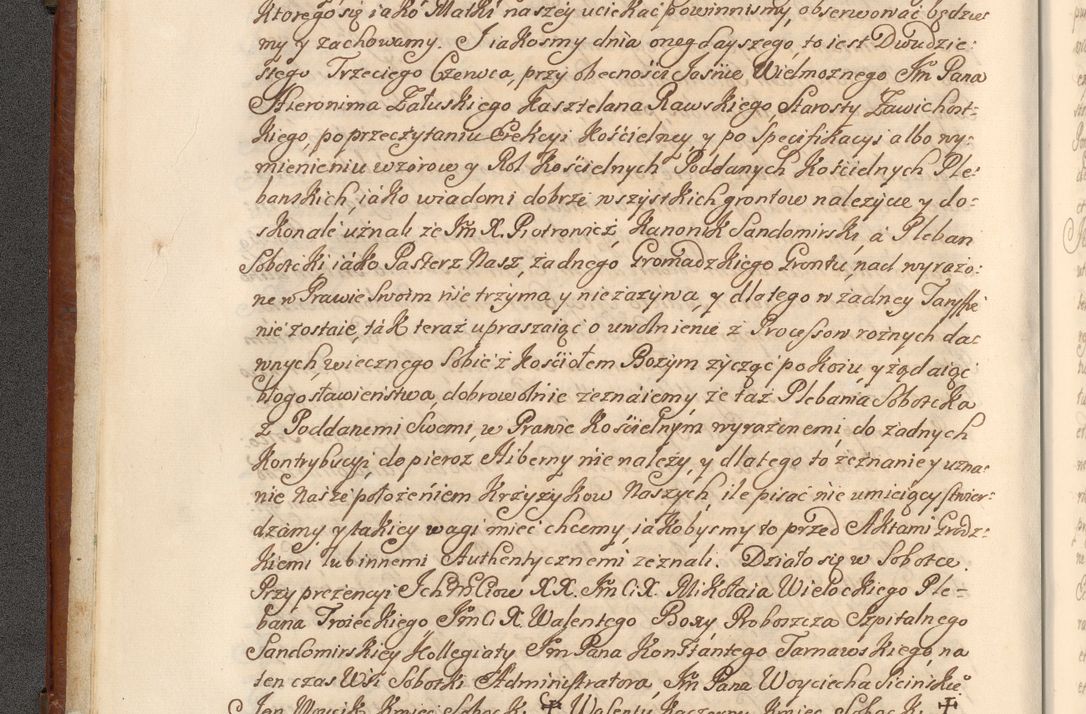 Ktorego się iako Matki naszey uciekać powinnismy, obserwować będzie:
my y zachowamy. J iakosmy dnia onegdayszego, to iest Dwudzie:
stego Trzeciego Czerwca, przy obecności Jaśnie Wielmoznego Jm Pana
Hieronima Załuskiego Kasztelana Rawskiego Starosty Zawichost:
kiego, po przeczytaniu Erekcyi Kościelney, y po Specifikacyi albo wy:
mienieniu wzorow y Rol Kościelnych Poddanych Kościelnych Ple:
banskich, iako wiadomi dobrze wszystkich grontow nalezycie y do:
skonale uznali ze Jm X. Piotrowicz Kanonik Sandomirski a Pleban
Sobotcki iako Pasterz Nasz, zadnego Gromadzkiego Grontu, nad wyrazo:
ne w Prawie Swoim nie trzyma y niezazywa, y dlatego w zadney Taryffie
nie zostaie, tak teraz upraszaiąc o uwolnienie z Processow roznych da:
wnych, wiecznego Sobie z Kościołem Bozym zycząc pokoiu, y ządaiąc
błogosławieństwa, dobrowolnie zeznaiemy, ze taz Plebania Sobotcka
z Poddanemi Swemi, w Prawie Kościelnym wyrazonemi, do zadnych
Kontrybucyi, dopieroz Hiberny nie nalezy, y dlatego to zeznanie y uzna:
nie Nasze połozeniem Krzyzykow Naszych, ile pisać nie umieiący stwier:
dzamy y takiey wagi mieć chcemy, iakobysmy to przed Aktami Grodz:
kiemi lub innemi Authentycznemi zeznali. Działo się w Sobotce.
Przy prezencyi Ich XX. Jm Ci X. Mikołaia Wielockiego Ple-
bana Troieckiego Jm Ci X. Walentego Boxy Proboszcza Szpitalnego
Sandomirskiey Kollegiaty Jm Pana Konstantego Tarnawskiego, na
ten czas Wsi Sobotki Administratora, Jm Pana Woyciecha Sicinskie
Jan Woycik Kmieć Sobocki ✝ Walenty Kaczorny Kmieć Sobocki ✝